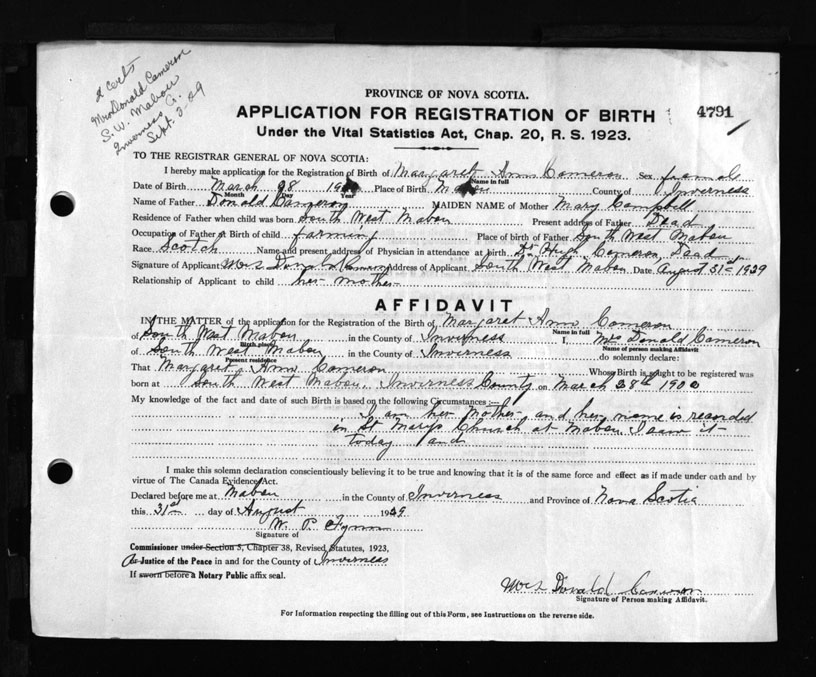 2 Certs
Mrs Donald Cameron
S. W. Mabou
Inverness Co.
Sept. 3-29
PROVINCE OF NOVA SCOTIA.
APPLICATION FOR REGISTRATION OF BIRTH
4791
Under the Vital Statistics Act, Chap. 20, R. S. 1923.
TO THE REGISTRAR GENERAL OF NOVA SCOTIA:
I hereby make application for the Registration of Birth of Margaret Ann Cameron Sex female
Name in full
Date of Birth March 28 1900 Place of Birth Mabou County of Inverness
Month Day Year
Name of Father Donald Cameron MAIDEN NAME of Mother Mary Campbell
Residence of Father when child was born South West Mabou Present address of Father Dead
Occupation of Father at Birth of child farming Place of birth of Father South West Mabou
Race Scotch Name and present address of Physician in attendance at birth Dr Hugh Cameron, Dead
Signature of Applicant Mrs Donald Cameron Address of Applicant South West Mabou Date August 31st 1929
Relationship of Applicant to child her mother
AFFIDAVIT
IN THE MATTER of the application for the Registration of the Birth of Margaret Ann Cameron
Name in full
of South West Mabou in the County of Inverness I, Mrs Donald Cameron
Birth place Name of person making Affidavit
of South West Mabou in the County of Inverness do solemnly declare:
Present residence
That Margaret Ann Cameron Whose Birth is sought to be registered was
born at South West Mabou, Inverness County on March 28th 1900
My knowledge of the fact and date of such Birth is based on the following Circumstances:—
I am her Mother and her name is recorded
in St Marys Church at Mabou I saw it
today and
I make this solemn declaration conscientiously believing it to be true and knowing that it is of the same force and effect as if made under oath and by
virtue of The Canada Evidence Act.
Declared before me at Mabou in the County of Inverness and Province of Nova Scotia
this 31st day of August 1929
W. P. Flynn
Signature of
Commissioner under Section 3, Chapter 38, Revised Statutes, 1923,
Or Justice of the Peace in and for the County of Inverness
If sworn before a Notary Public affix seal.
Mrs Donald Cameron
Signature of Person making Affidavit.
For Information respecting the filling out of this Form, see Instructions on the reverse side.